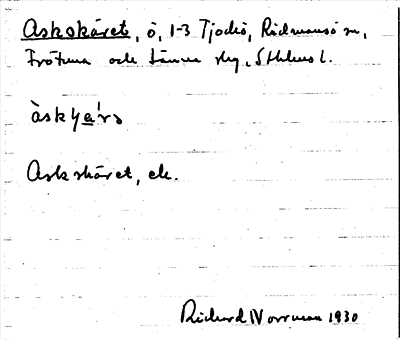 Askskäret, ö, 1-3 Tjockö, Rådmansö sn,
Frötuna och Länna skg, Sthlms l.
àskʃæ̀rə
Askskäret, ek.
Richard Norrman 1930